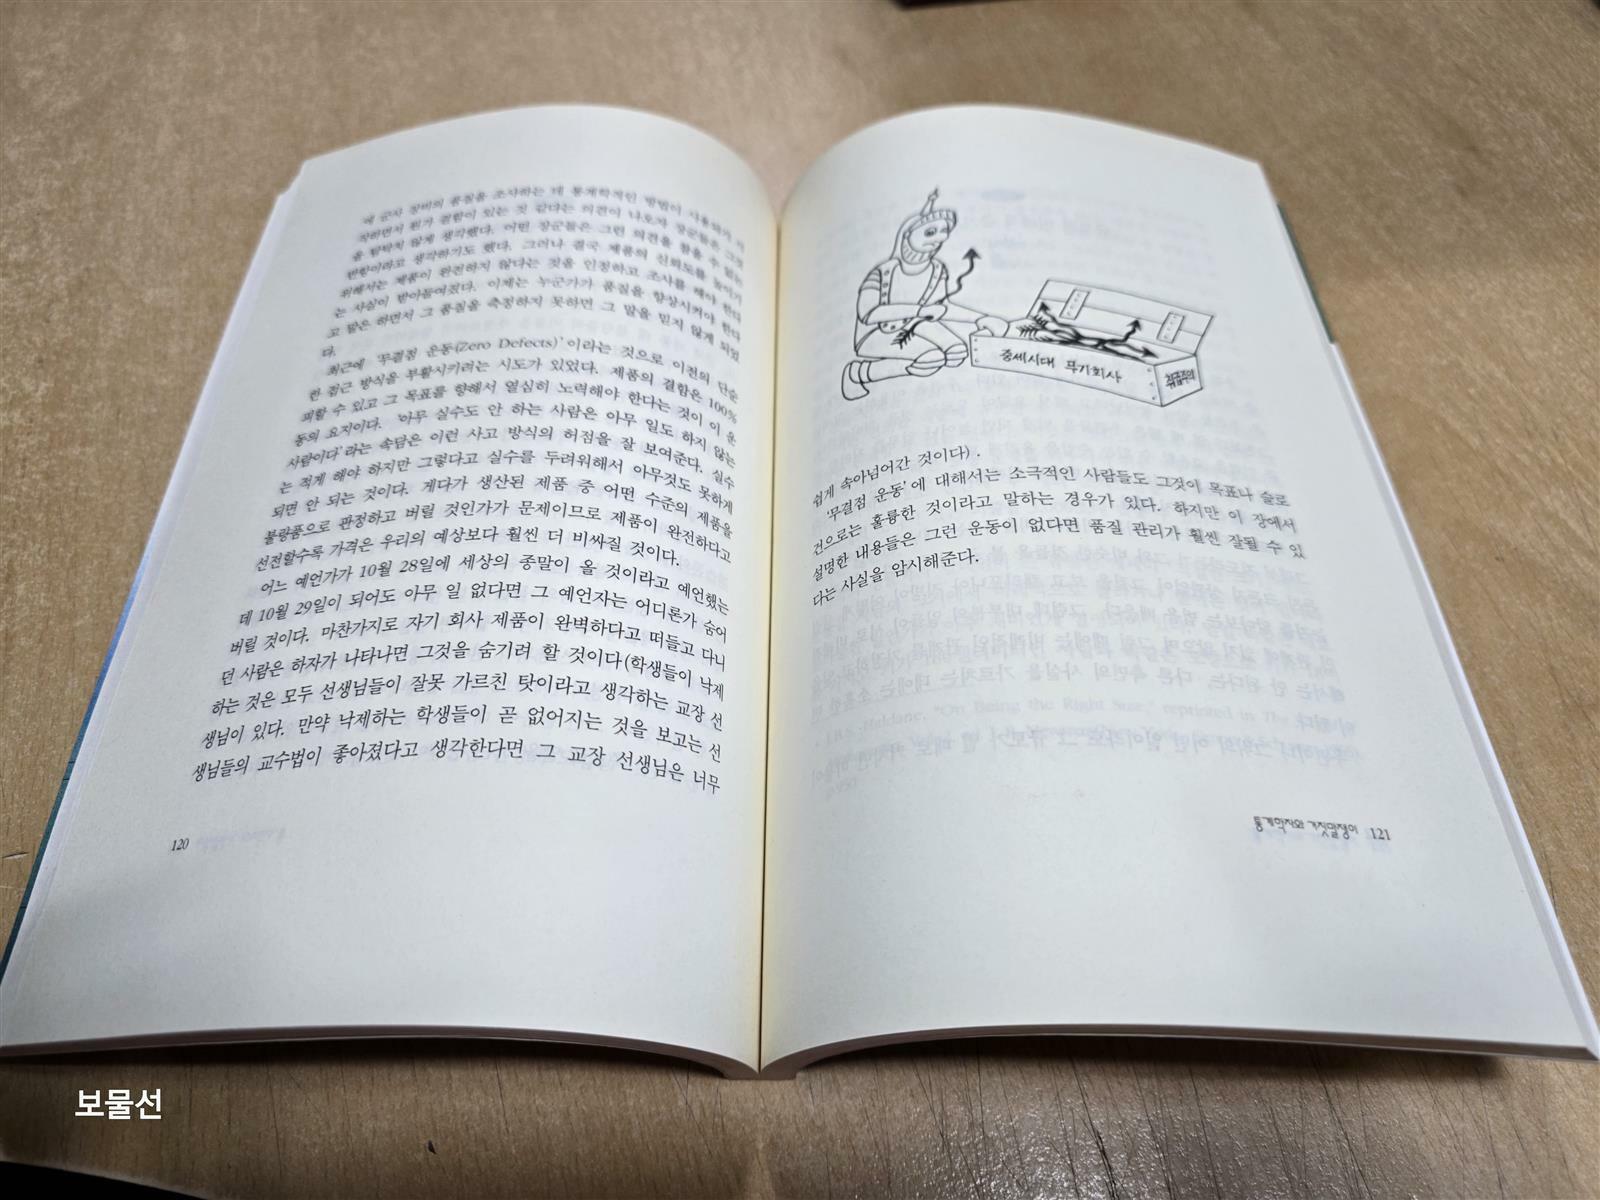 에 군사 장비의 품질을 조사하는 데 통계학적인 방법이
작하면서 뭔가 결함이 있는 것 같다는 의견이 나오자 장군들은 그것
을 탐탁치 않게 생각했다. 어떤 장군들은 그런 의견을 참을 수 없는
반항이라고 생각하기도 했다. 그러나 결국 제품의 신뢰도를 높이기
위해서는 제품이 완전하지 않다는 것을 인정하고 조사를 해야 한다
는 사실이 받아들여졌다. 이제는 누군가가 품질을 향상시켜야 한다
고 말은 하면서 그 품질을 측정하지 못하면 그 말을 믿지 않게 되었
다.
최근에 '무결점 운동(Zero Defects)'이라는 것으로 이전의 단순
한 접근 방식을 부활시키려는 시도가 있었다. 제품의 결함은 100%
피할 수 있고 그 목표를 향해서 열심히 노력해야 한다는 것이 이 운
동의 요지이다. '아무 실수도 안 하는 사람은 아무 일도 하지 않는
사람이다'라는 속담은 이런 사고 방식의 허점을 잘 보여준다. 실수
는 적게 해야 하지만 그렇다고 실수를 두려워해서 아무것도 못하게
되면 안 되는 것이다. 게다가 생산된 제품 중 어떤 수준의 제품을
불량품으로 판정하고 버릴 것인가가 문제이므로 제품이 완전하다고
선전할수록 가격은 우리의 예상보다 훨씬 더 비싸질 것이다.
어느 예언가가 10월 28일에 세상의 종말이 올 것이라고 예언했는
데 10월 29일이 되어도 아무 일 없다면 그 예언자는 어디론가 숨어
버릴 것이다. 마찬가지로 자기 회사 제품이 완벽하다고 떠들고 다니
던 사람은 하자가 나타나면 그것을 숨기려 할 것이다(학생들이 낙제
하는 것은 모두 선생님들이 잘못 가르친 탓이라고 생각하는 교장 선
생님이 있다. 만약 낙제하는 학생들이 곧 없어지는 것을 보고는 선
생님들의 교수법이 좋아졌다고 생각한다면 그 교장 선생님은 너무
120
중세시대 무기회사
취급주의
쉽게 속아넘어간 것이다).
'무결점 운동'에 대해서는 소극적인 사람들도 그것이 목표나 슬로
건으로는 훌륭한 것이라고 말하는 경우가 있다. 하지만 이 장에서
설명한 내용들은 그런 운동이 없다면 품질 관리가 훨씬 잘될 수 있
다는 사실을 암시해준다.
통계학자와 거짓말쟁이 121
보물선